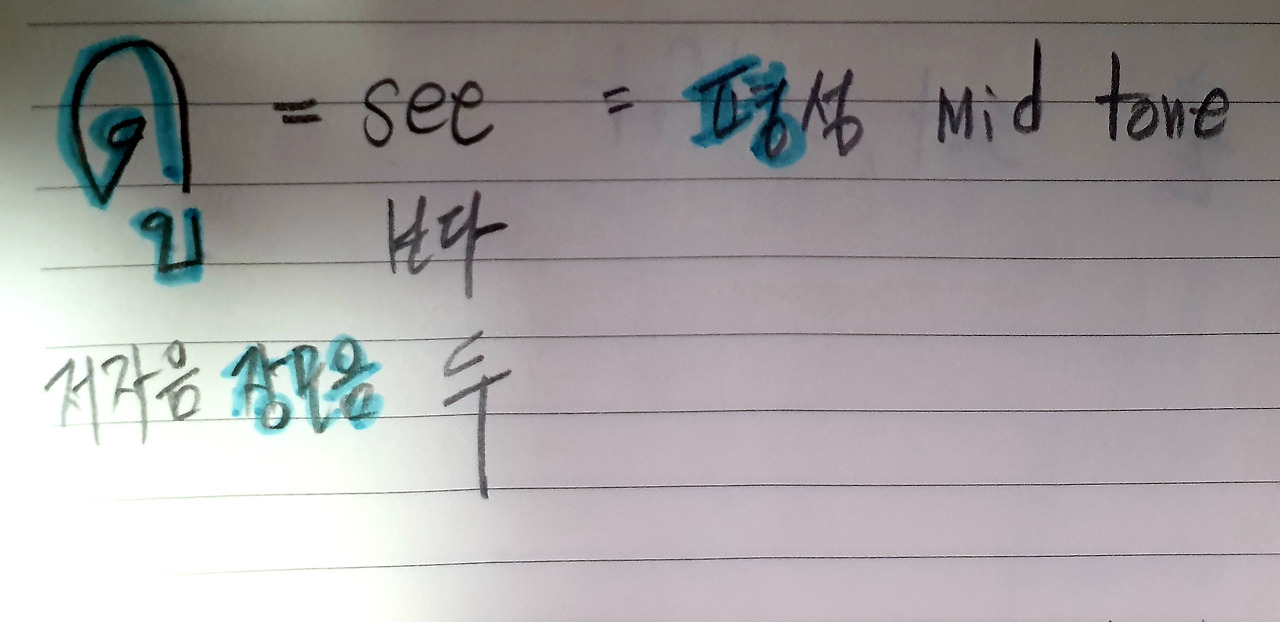 ดู = see = 평성 Mid tone
보다
저자음 장모음 두